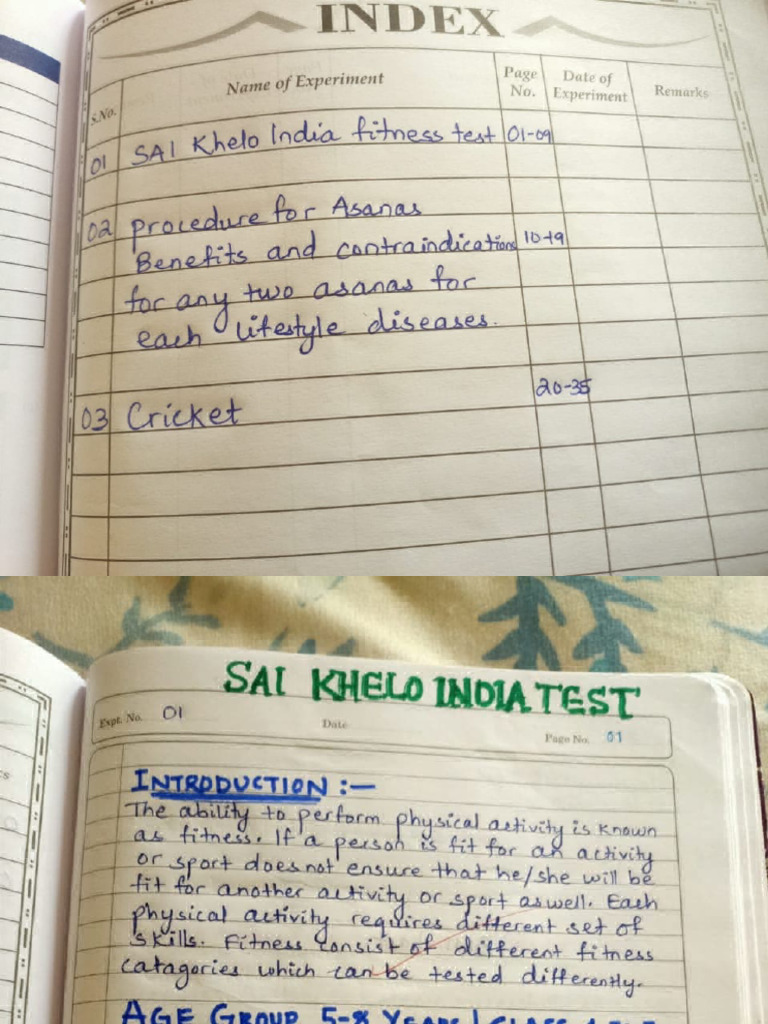 INDEX
S.No. Name of Experiment Page No. Date of Experiment Remarks
01 SAI Khelo India fitness test 01-09
02 procedure for Asanas
Benefits and contraindications 10-19
for any two asanas for
each lifestyle diseases.
20-35
03 Cricket
SAI KHELO INDIA TEST
Expt. No. 01 Date Page No. 01
INTRODUCTION :-
The ability to perform physical activity is known
as fitness. If a person is fit for an activity
or sport does not ensure that he/she will be
fit for another activity or sport as well. Each
physical activity requires different set of
skills. Fitness consist of different fitness
catagories which can be tested differently.
AGE GROUP 5-8 YEARS